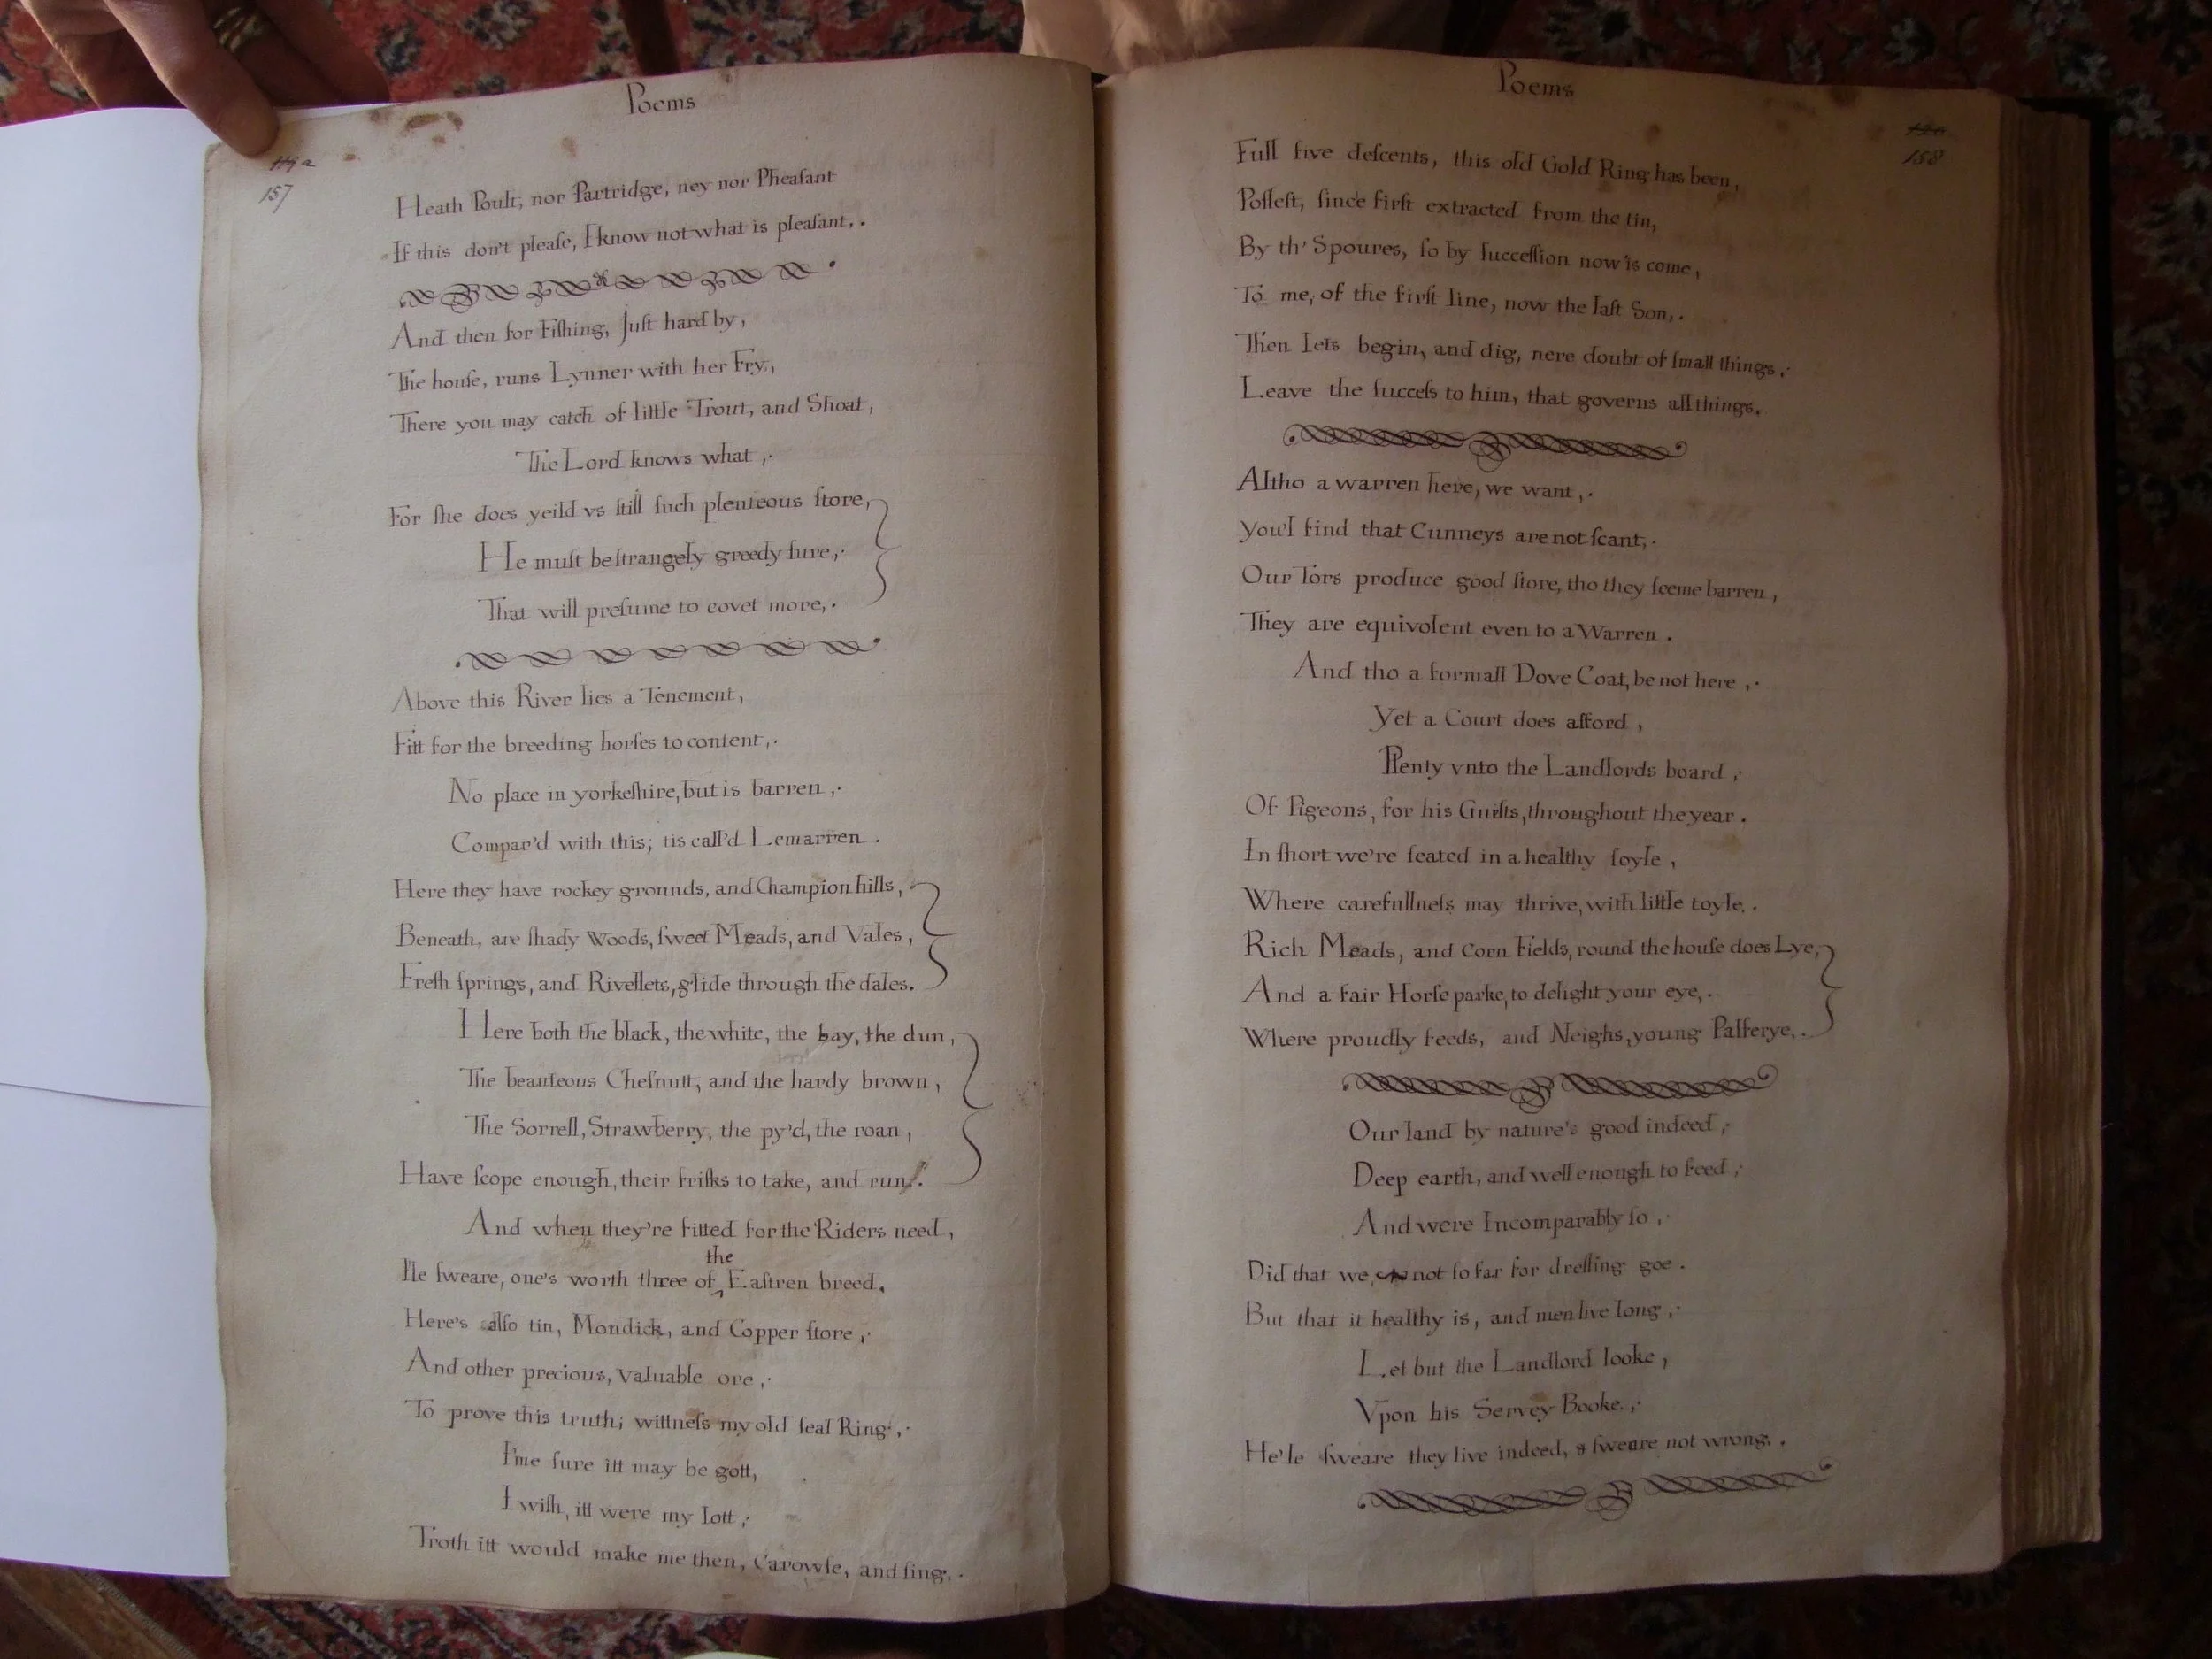 Poems
157
Heath Poult, nor Partridge, ney nor Pheaſant
If this don't pleaſe, I know not what is pleaſant,.
And then for Fiſhing, Juſt hard by,
The houſe, runs Lynner with her Fry,
There you may catch of little Trout, and Shoat,
The Lord knows what,.
For ſhe does yeild vs ſtill ſuch plenteous ſtore,
He muſt be ſtrangely greedy ſure,.
That will preſume to covet more,.
Above this River lies a Tenement,
Fitt for the breeding horſes to content,.
No place in yorkeſhire, but is barren,.
Compar'd with this; tis call'd Lemarren.
Here they have rockey grounds, and Champion hills,
Beneath, are ſhady Woods, ſweet Meads, and Vales,
Freſh ſprings, and Rivellets, glide through the dales.
Here both the black, the white, the bay, the dun,
The beauteous Cheſnutt, and the hardy brown,
The Sorrell, Strawberry, the py'd, the roan,
Have ſcope enough, their friſks to take, and run.
And when they're fitted for the Riders need,
I'le ſweare, one's worth three of the Eaſtren breed.
Here's alſo tin, Mondick, and Copper ſtore,.
And other precious, valuable ore,.
To prove this truth; wittneſs my old ſeal Ring,.
I'me ſure itt may be gott,
I wiſh, itt were my lott,.
Troth itt would make me then, Carowſe, and ſing,.
Poems
158
Full five deſcents, this old Gold Ring has been,
Poſſeſt, ſince firſt extracted from the tin,
By th' Spoures, ſo by ſucceſſion now is come,
To me, of the firſt line, now the laſt Son,.
Then lets begin, and dig, nere doubt of ſmall things,.
Leave the ſucceſs to him, that governs all things.
Altho a warren here, we want,.
You'l find that Cunneys are not ſcant,.
Our Tors produce good ſtore, tho they ſeeme barren,
They are equivolent even to a Warren.
And tho a formall Dove Coat, be not here,.
Yet a Court does afford,
Plenty vnto the Landlords board,.
Of Pigeons, for his Gueſts, throughout the year.
In ſhort we're ſeated in a healthy ſoyle,
Where carefullneſs may thrive, with little toyle,.
Rich Meads, and Corn Fields, round the houſe does Lye,
And a fair Horſe parke, to delight your eye,.
Where proudly feeds, and Neighs, young Palferye,.
Our land by nature's good indeed,.
Deep earth, and well enough to feed,.
And were Incomparably ſo,.
Did that we, not ſo far for dreſſing goe.
But that it healthy is, and men live long,.
Let but the Landlord looke,
Vpon his Servey Booke,.
He'le ſweare they live indeed, & ſweare not wrong.